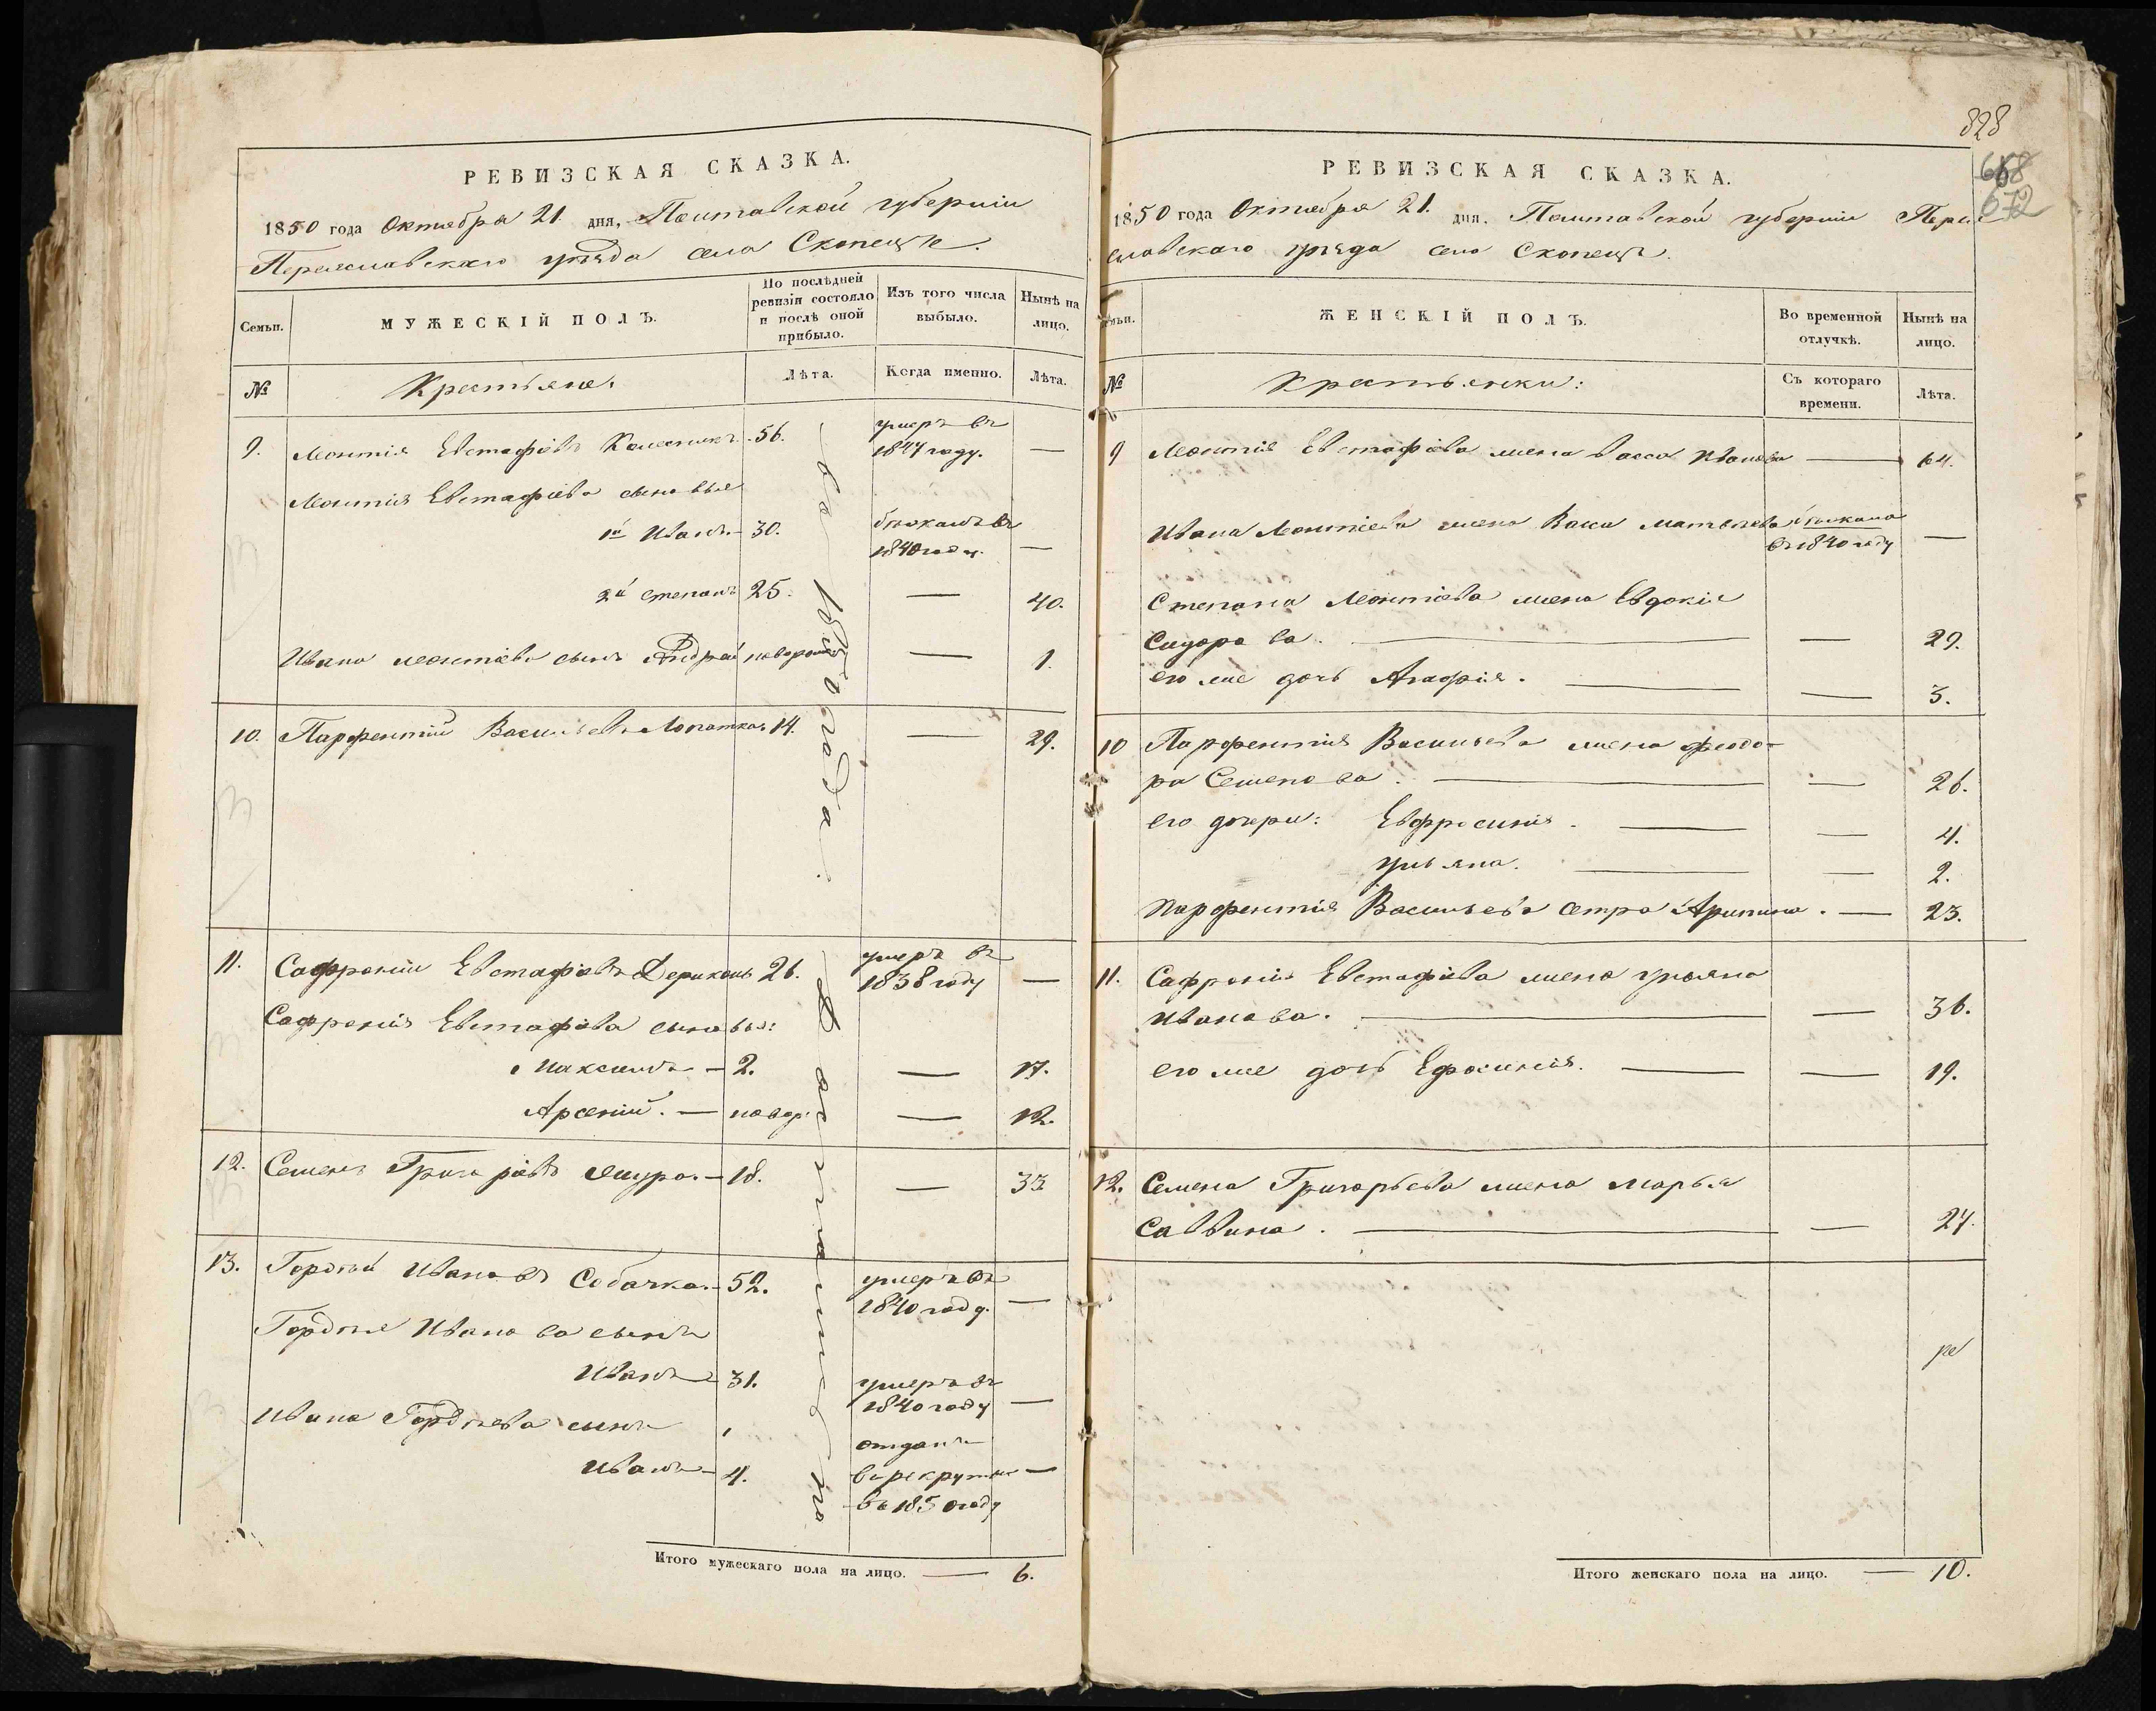 РЕВИЗСКАЯ СКАЗКА.
1850 года Октебря 21. дня, Полтавской губерніи
Переяславскаго уѣзда села Скопецъ.
Семьи.
МУЖЕСКІЙ ПОЛЪ.
По послѣдней
ревизіи состояло
и послѣ оной
прибыло.
Изъ того числа
выбыло.
Нынѣ на
лицо.
№
Крестьяне.
Лѣта.
Когда именно.
Лѣта.
9. Леонтія Евстафіевъ Колесникъ 56. умеръ въ
1847 году. —
Леонтія Евстафіева сыновья
1й Иванъ — 30. бѣжалъ въ
1840 году. —
2й Степанъ 25. — 40.
Ивана Леонтіева сынъ Андрей новорож — 1.
10. Парфентій Васильевъ Лопатка 14. — 29.
11. Сафроній Евстафіевъ 26. умеръ въ
1838 году —
Сафронія Евстафіева сыновья:
Максимъ — 2. — 17.
Арсеній. — новор. — 12.
12. Семенъ Григоріевъ — 18. — 33
13. Гордѣй Ивановъ Собачка. — 52. умеръ въ
1840 году. —
Гордѣя Иванова сынъ
Иванъ — 31. умеръ въ
1840 году —
Ивана Гордѣева сынъ
Иванъ — 4. отданъ
въ рекруты —
въ 1850 году
Итого мужескаго пола на лицо. — 6.
828
668
672
РЕВИЗСКАЯ СКАЗКА.
1850 года Октебря 21. дня, Полтавской губерніи Перея
славскаго уѣзда село Скопецъ.
ЖЕНСКІЙ ПОЛЪ.
Во временной
отлучкѣ.
Нынѣ на
лицо.
№
Крестьянки:
Съ котораго
времени.
Лѣта.
9 Леонтія Евстафіева жена Васса Иванова — 64.
Ивана Леонтіева жена Матвѣева бѣжала
въ 1840 году —
Степана Леонтіева жена Евдокія
Сидорова. — — 29.
его же дочь Агафія. — — 3.
10 Парфентія Васильева жена Феодо-
ра Семенова. — — 26.
его дочери: Евфросинія. — — 4.
Ульяна. — — 2.
Парфентія Васильева сетра Арипина. — 23.
11. Сафронія Евстафіева жена Ульяна
Иванова. — — 36.
его же дочь Ефросинія. — — 19.
12. Семена Григорьева жена Марья
Саввина. — — 27.
Итого женскаго пола на лицо. — 10.